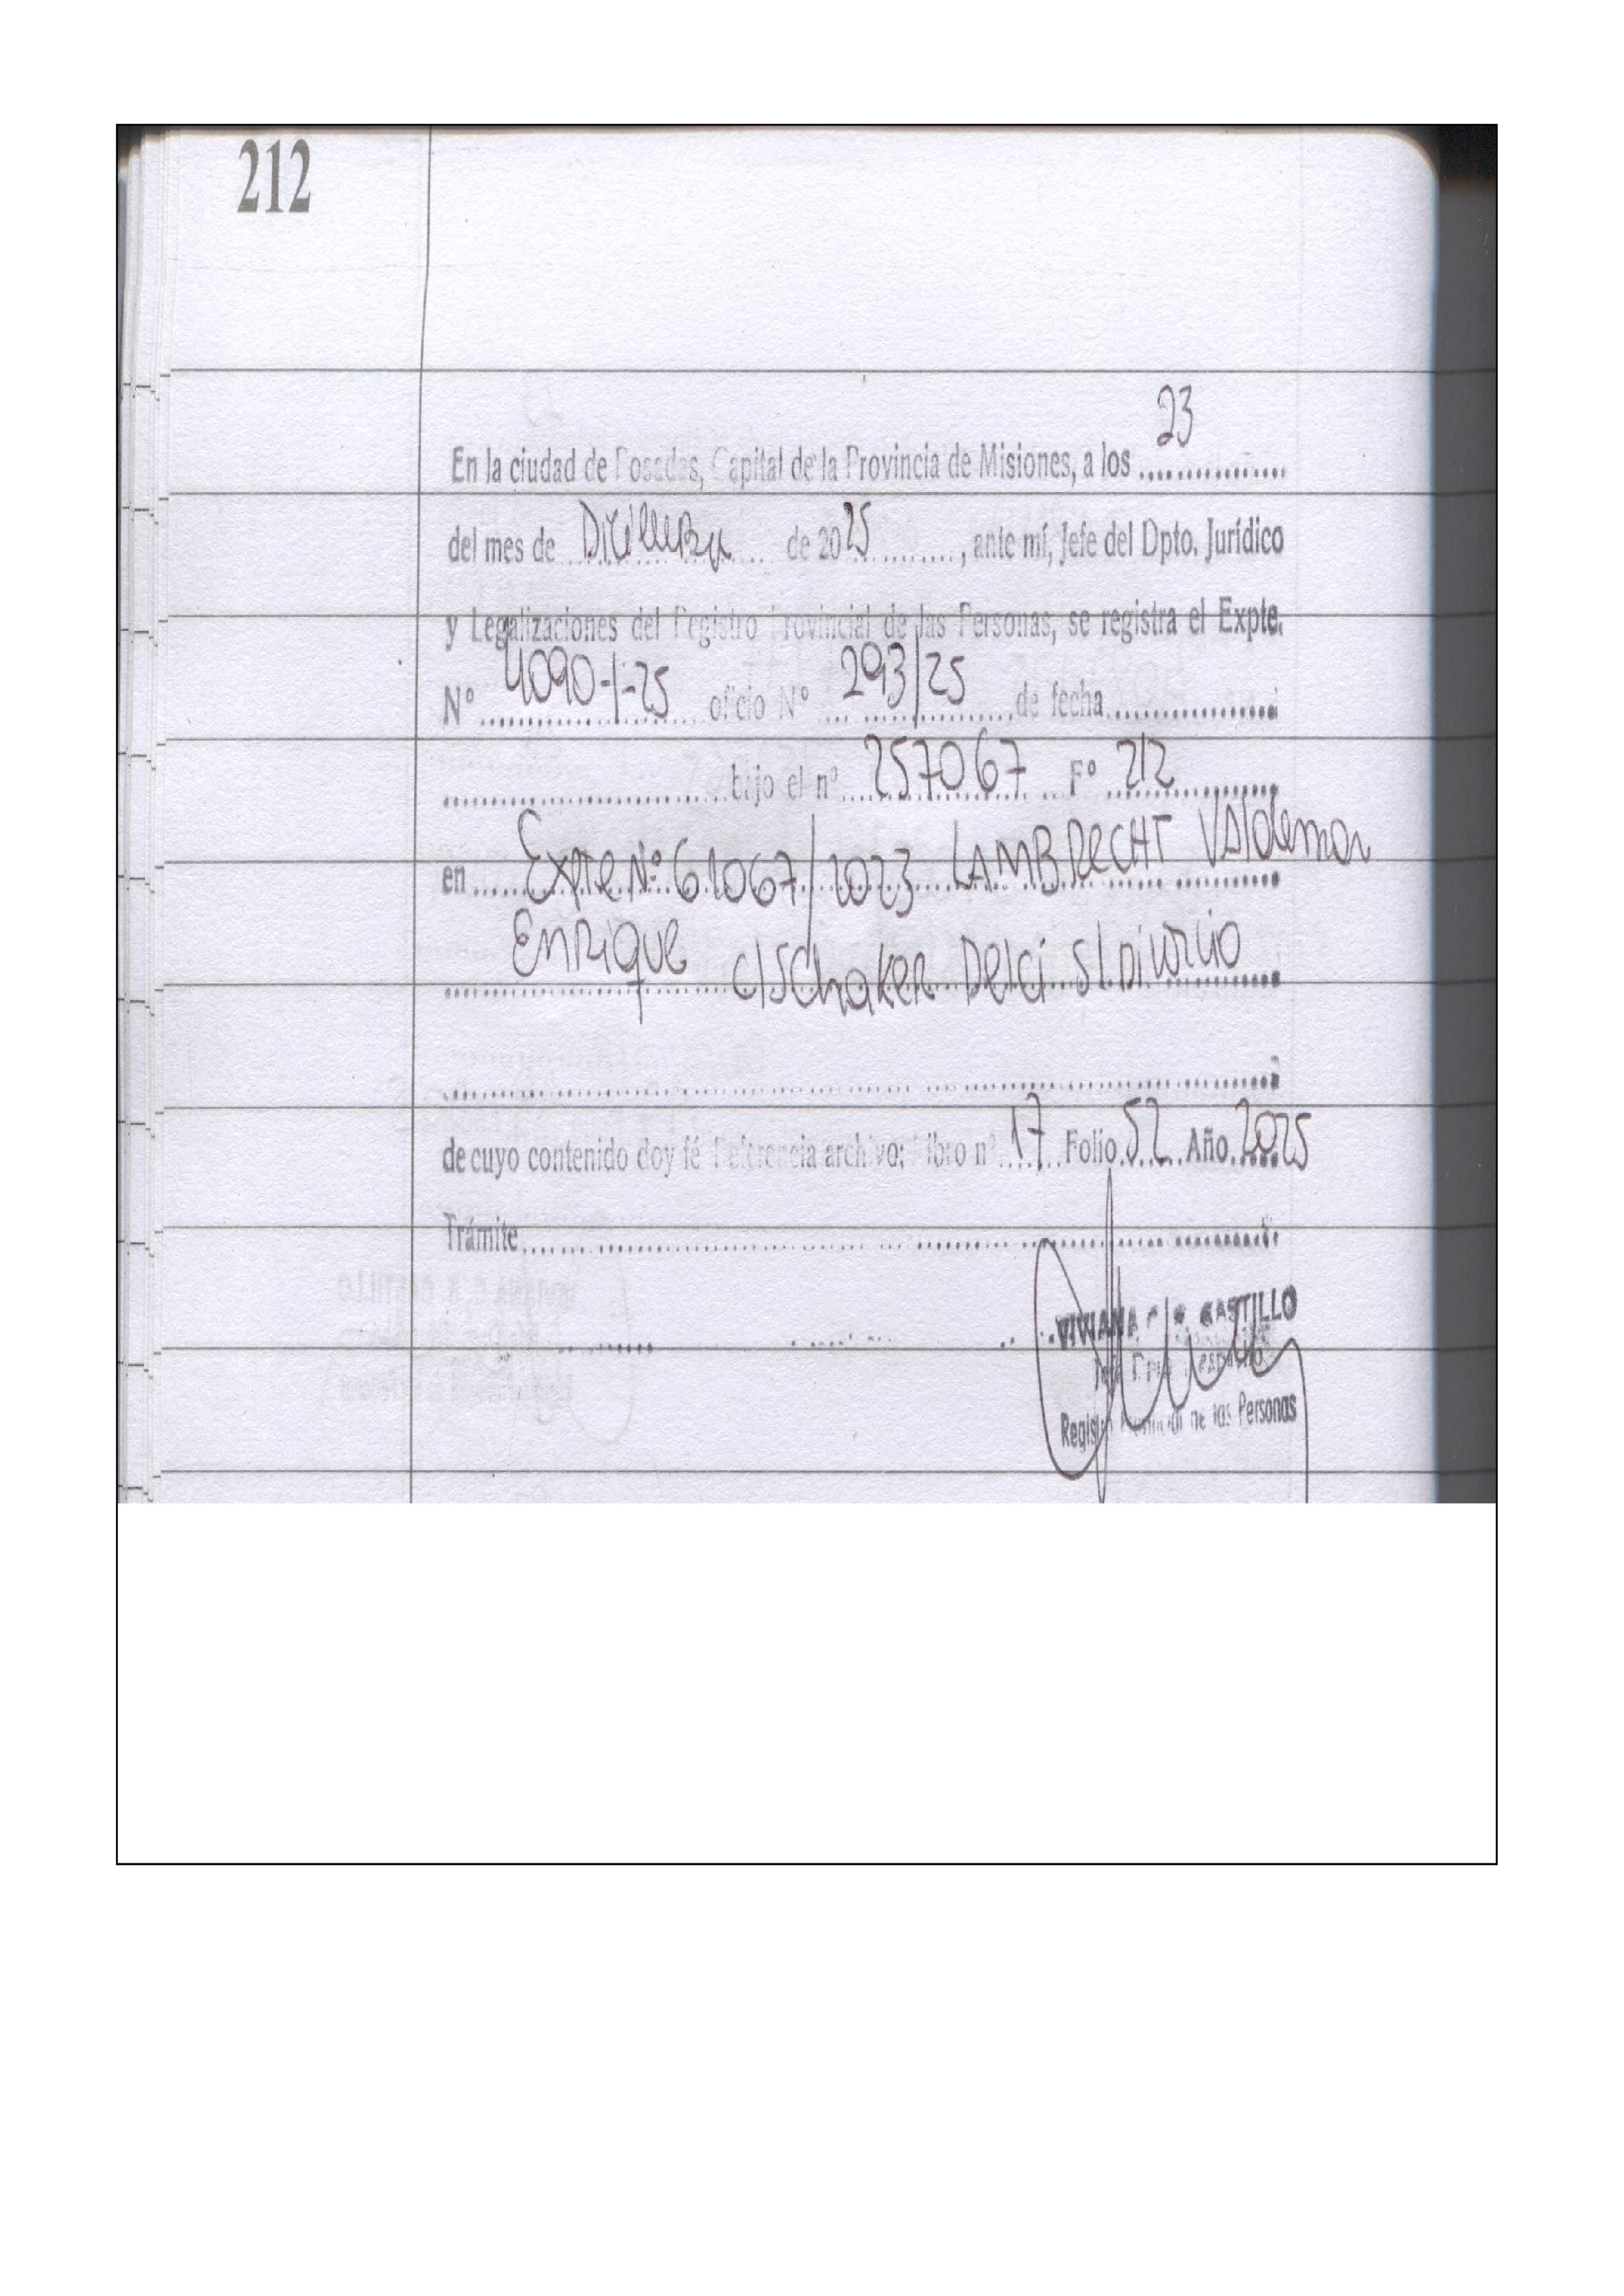 212
23
En la ciudad de Posadas, Capital de la Provincia de Misiones, a los ................
del mes de Diciembre de 2025 ........., ante mí, Jefe del Dpto. Jurídico
y Legalizaciones del Registro Provincial de las Personas, se registra el Expte.
N° 4090-I-25 oficio N° 293/25 de fecha..................
bajo el n° 257067 F° 212
en Expte N° 61067/2023 LAMBRECHT VAldemar
Enrique c/Schaker Delci S/Divorcio
de cuyo contenido doy fé Referencia archivo: Libro n° 17 Folio 52 Año 2025
Trámite
VIVIANA CASTILLO
Dpto. Despacho
Registro Provincial de las Personas